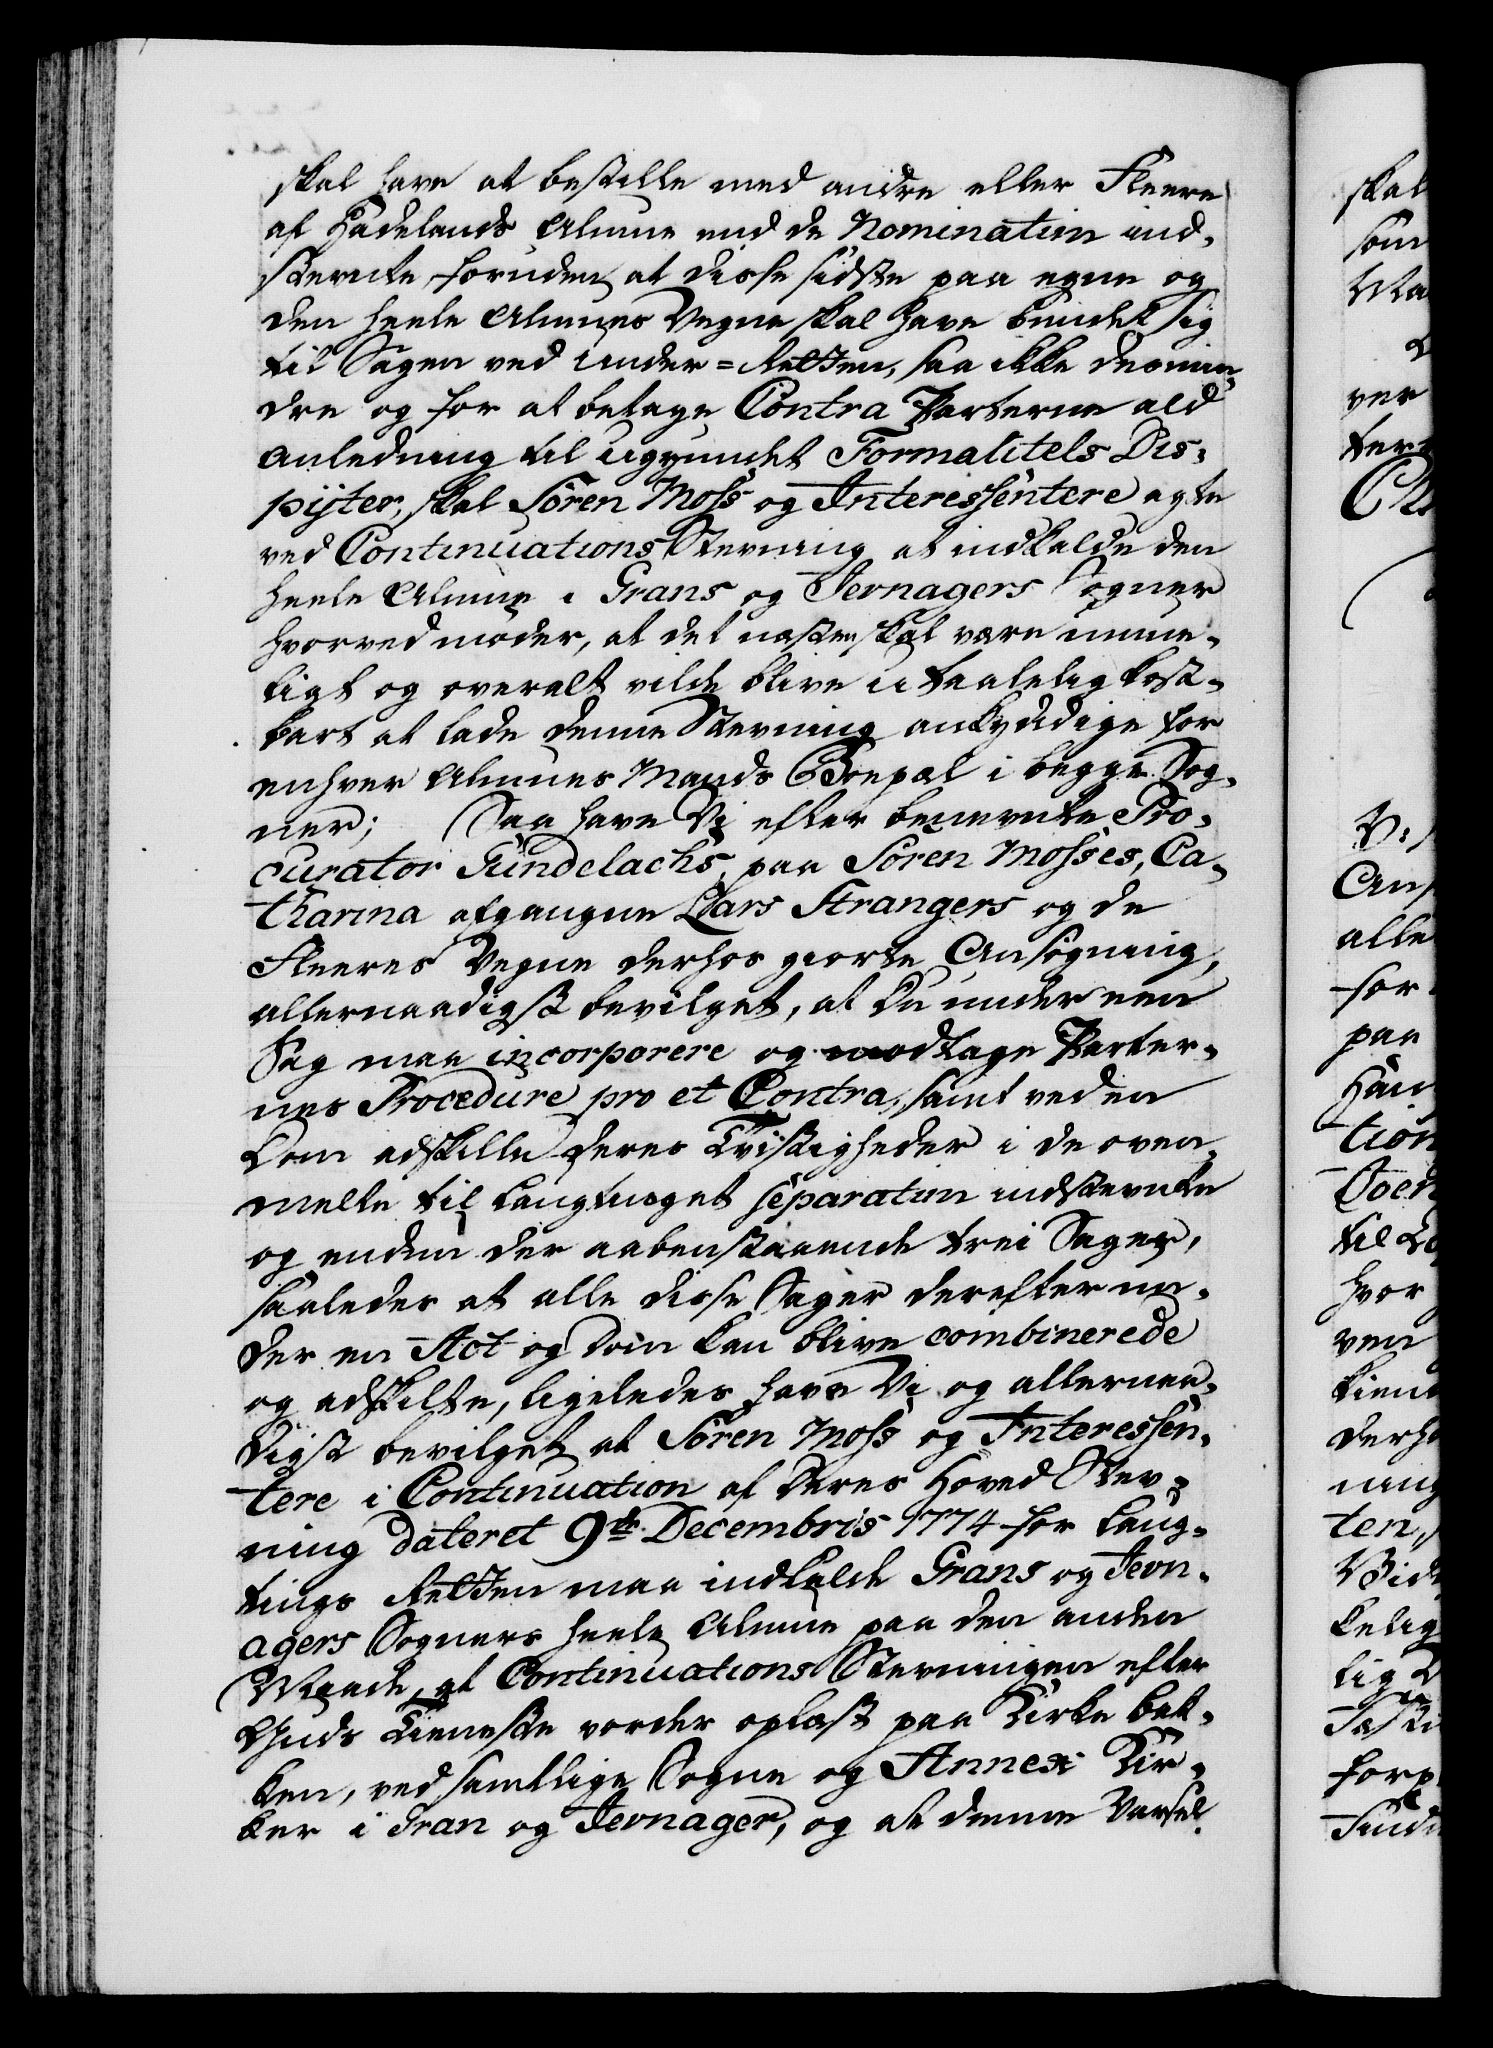 skal have at bestille med andre eller Fleere
af Hadelands Almue end de Nomination ind-
stevnte, foruden at disse sidste paa egne og
den heele Almues Vegne skal have bundet sig
til Sagen ved Under=Retten, saa ikke desmin-
dre og for at betage Contra Parterne ald
Anledning til ugrundet Formalitets Dis-
pyter, skal Sören Moss og Interessentere agte
ved Continuations Stevning at indkalde den
heele Almue i Grans og Jevnagers Sogner
hvorved møder, at det næsten skal være umue-
ligt og overalt vilde blive utaalelig kost-
bart at lade denne Stevning ankyndige for
enhver Almues Mands Boepæl i begge Sog-
ner; Saa have Vi efter benevnte Pro-
curator Gündelachs, paa Sören Mosses, Ca-
tharina afgangne Lars Strangers og de
Fleeres Vegne derhos giorte Ansögning,
allernaadigst bevilget, at Du under een
Sag maa incorporere og modtage Parter-
nes Procedure pro et Contra, samt ved en
Dom adskille deres Tvistigheder i de oven-
melte til Laugtinget separatim indstevnte
og endnu der aabenstaaende trei Sager,
saaledes at alle disse Sager derefter un-
der en Act og Dom kan blive combinerede
og adskilte, ligeledes have Vi og allernaa-
digst bevilget at Sören Moss og Interessen-
tere i Continuation af deres Hoved Stev-
ning dateret 9de Decembris 1774 for Laug-
tings Retten maa indkalde Grans og Jevn-
agers Sogners heele Almue paa den anden
Maade, at Continuations Stevningen efter
Guds Tieneste vorder oplæst paa Kirke bak-
ken, ved samtlige Sogne og Annex Kir-
ker i Gran og Jevnager, og at denne Varsel